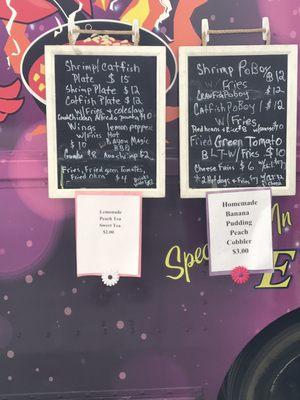 Shrimp/Catfish
Plate $15
Shrimp Plate $12
Catfish Plate $12
w/Fries + coleslaw
Chicken Alfredo
Wings lemon pepper
w/Fries Hot
$10 Bayou Magic
BBQ
Gumbo $8
Fries, Fried green tomatoes,
Fried Okra
Shrimp PoBoy
w/Fries $12
Crawfish PoBoy $12
Catfish PoBoy $12
w/Fries
Red beans + Rice $8
Fried Green Tomato
BLT w/Fries $10
Cheese Fries $6
2 Hot dogs + Fries
Lemonade
Peach Tea
Sweet Tea
$2.00
Homemade
Banana
Pudding
Peach
Cobbler
$3.00
Spec
In
E